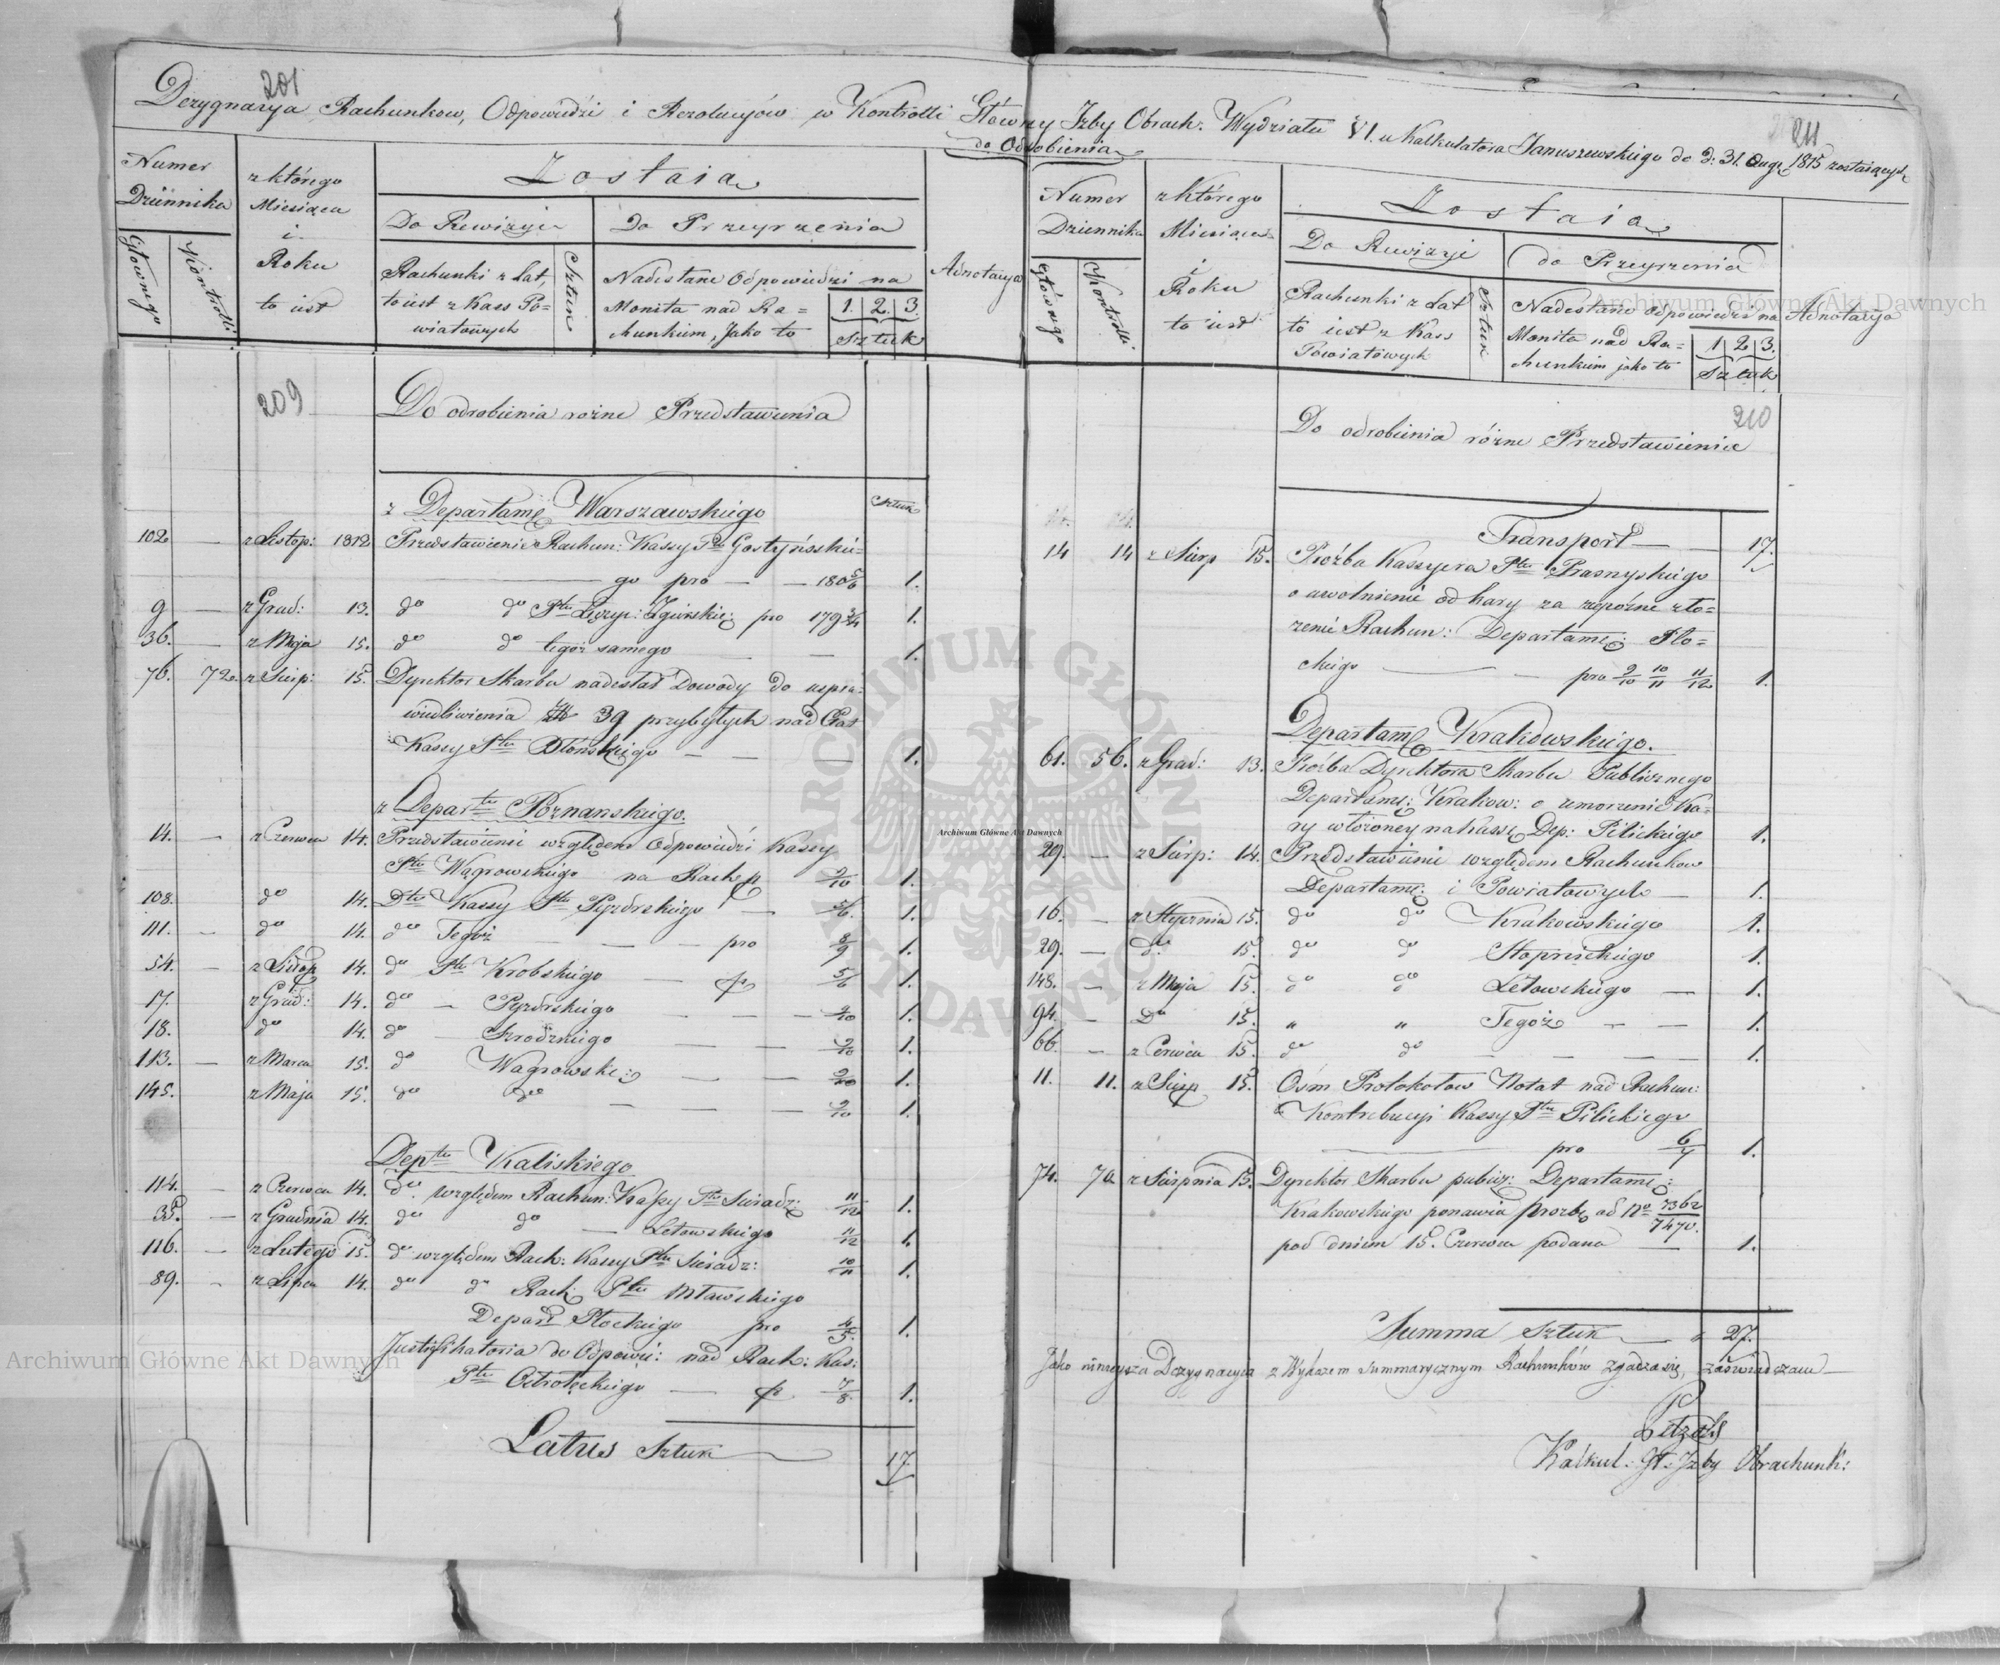 201
Dezygnacya Rachunkow, Odpowiedzi i Rezolucyów w Kontrolli Główney Izby Obrach. Wydziału VI. u Kalkulatora Januszewskiego do d: 31. Aug. 1815 zostaiących
do Odrobienia
211
Numer
Dziennika
Głownego
Kontrolli
z którego
Miesiąca
i
Roku
to iest
Zostaia
Do Rewizyi
Do Przeyrzenia
Rachunki z lat,
to iest z Kass Po-
wiatowych
Sztuk
Nadesłane Odpowiedzi na
Monita nad Ra=
chunkiem, Jako to
1. 2. 3.
Sztuk
Adnotacya
209
Do odrobienia rożne Przedstawienia
z Departamę Warszawskiego
Sztuk
102 — z Listop: 1812 Przedstawienie Rachun: Kassy Ptu Gostyńskie=
go pro — — 180 5/6 1.
9 — z Grud: 13. do do Ptu Łęczyc: Zgierskie: pro 179 3/4 1.
36. — z Maja 15. do do tegoż samego — — 1.
76. 72. z Sierp: 15. Dyrektor Skarbu nadesłał Dowody do uspra=
wiedliwienia 39 przybyłych nad Etat
Kassy Ptu Błońskiego — — — 1.
z Departtu Poznanskiego.
14. — z Czerwca 14. Przedstawienie względem Odpowiedzi Kassy
Ptu Wągrowskiego na Rach p 9/10 1.
108. do 14. Dtto Kassy Ptu Pyzdrskiego — 5/6. 1.
111. — do 14. do Tegoż — — — pro 8/9 1.
54. — z Listop 14. do Ptu Krobskiego — p 5/6 1.
17. z Grud: 14. do — Pyzdrskiego — — — 9/10 1.
18. do 14. do — Szrodzkiego — — 9/10 1.
113. — z Marca 15. do Wągrowskie: — — 9/10 1.
145. z Maja 15. do do — — — 9/10 1.
Deptu Kaliskiego
114. — z Czerwca 14. do. względem Rachun: Kassy Ptu Sieradz: 11/12 1.
35. — z Grudnia 14. do do — Lelowskiego 11/12 1.
116. — z Lutego 15. do względem Rach: Kassy Ptu Sieradz: 10/11 1.
89. — z Lipca 14. do do Rach: Ptu Mławskiego
Depart Płockiego pro 4/5. 1.
Justifikatoria do Odpowie: nad Rach: Kas:
Ptu Ostrołęckiego — p 7/8. 1.
Latus Sztuk 17.
Numer
Dziennika
Główneg
Kontrolli
z którego
Miesiąca
i
Roku
to iest
Zostaia
Do Rewizyi
do Przeyrzenia
Rachunki z Lat
to iest z Kass
Powiatowych
Sztuk
Nadesłane odpowiedzi na
Monita nad Ra=
chunkiem jako to
1. 2. 3.
Sztuk
Adnotacya
210
Do odrobienia różne Przedstawienia
Transport — 17.
14 14 z Sierp 15. Proźba Kassyera Ptu Prasnyskiego
o uwolnienie od kary za zapóźne zło=
zenie Rachun: Departamę: Pło=
ckiego — — pro 9/10 10/11 11/12 1.
Departamę Krakowskiego.
61. 56. z Grud: 13. Proźba Dyrektora Skarbu Publicznego
Departamę: Krakow: o umorzenie Ka=
ry włożoney na Kassę Dep: Pilickiego 1.
29. — z Sierp: 14. Przedstawienie względem Rachunkow
Departamę: i Powiatowych — 1.
16. — z Stycznia 15. do do Krakowskiego 1.
29. — do. 15. do do Stopnickiego 1.
148. — z Maja 15. do do Lelowskiego — 1.
94. — Do 15. " " Tegoż — — 1.
66. — z Czerwca 15. do do — — — — 1.
11. 11. z Sierp 15. Ośm Protokołow Notat nad Rachun:
Kontrebucyi Kassy Ptu Pilickiego
— pro 6/7 1.
74. 70. z Sierpnia 15. Dyrektor Skarbu publicz: Departamę:
Krakowskiego ponawia Proźbę od No 7362/7470.
pod dniem 15. Czerwca podana — 1.
Summa Sztuk — 27.
Jako ninieysza Dezygnacyia z Wykazem Summarycznym Rachunków zgadza się, zaświadczam
Kalkul: Gł. Izby Obrachunk:
Archiwum Główne Akt Dawnych
Archiwum Główne Akt Dawnych
Archiwum Główne Akt Dawnych
ARCHIWUM GŁÓWNE AKT DAWNYCH